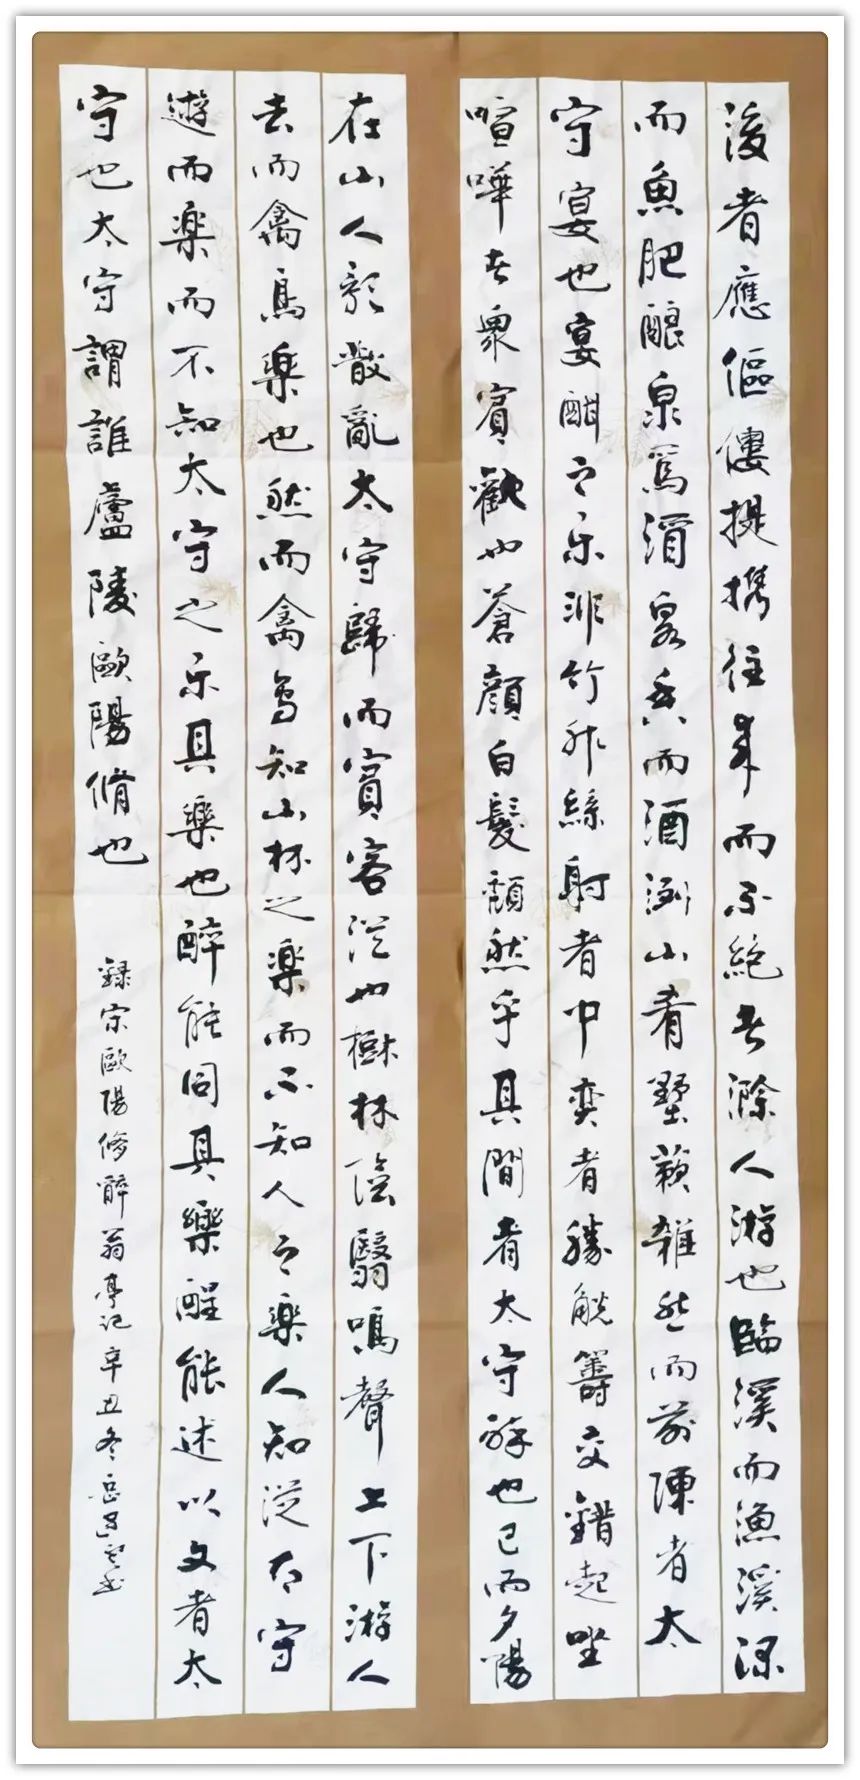 後者應傴僂提携往來而不絕者滁人游也臨溪而漁溪深
而魚肥釀泉為酒泉香而酒洌山肴墅蔌雜然而前陳者太
守宴也宴酣之乐非竹非絲射者中奕者勝觥籌交錯起坐
喧嘩者衆賓歡也蒼顏白髮頹然乎其間者太守醉也已而夕陽
在山人影散亂太守歸而賓客從也樹林陰翳鳴聲上下游人
去而禽鳥樂也然而禽鳥知山林之樂而不知人之樂人知從太守
遊而樂而不知太守之乐其樂也醉能同其樂醒能述以文者太
守也太守謂誰廬陵歐陽脩也
錄宋歐陽修醉翁亭記辛丑冬岳